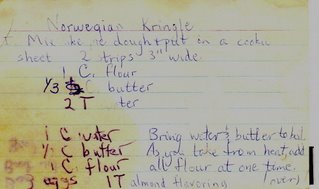 Norwegian Kringle
1. Mix like pie dough + put on a cookie
sheet 2 strips 3" wide.
1 C. flour
1/3 butter
2 T
1 C water Bring water & butter to boil.
1/2 C butter As you take from heat, add
1 C flour all flour at one time.
3 eggs 1 T almond flavoring (over)